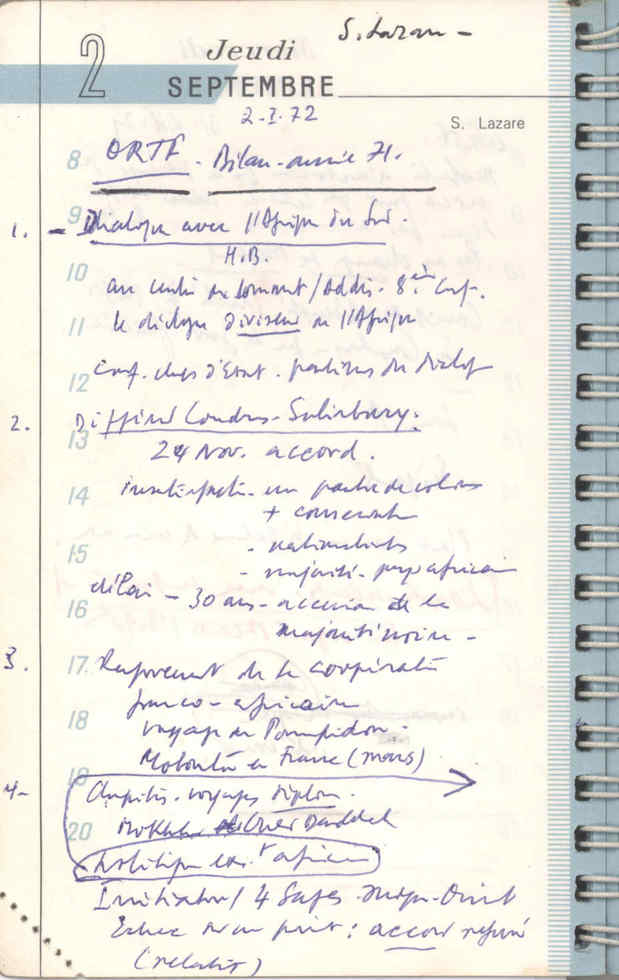 S. Lazare -
2 Jeudi
SEPTEMBRE
2-I-72
S. Lazare
8 ORTF - Bilan - année 71.
9
1. - Dialogue avec l'Afrique du Sud.
H.B.
10
au sommet / Addis - 8e Conf.
11 le dialogue divise l'Afrique
12 Conf. chefs d'Etat - du dialog
2. Différend Londres-Salisbury:
13
24 Nov. accord.
14 un partie de colons
+
15 - nationalistes
- majorité - pop africain
délai - 30 ans - accession de la
16
majorité noire -
3. 17 Renforcement de la coopérati
franco-africaine
18 voyage de Pompidou -
Mobutu en France (mars)
19
4- Chapitre - voyages diplom.
20 Mokhtar Ould Daddah
Politique africain
Initiative / 4 Sages - Moyen-Orient
Echec sur un point: accord refusé
(relatif)